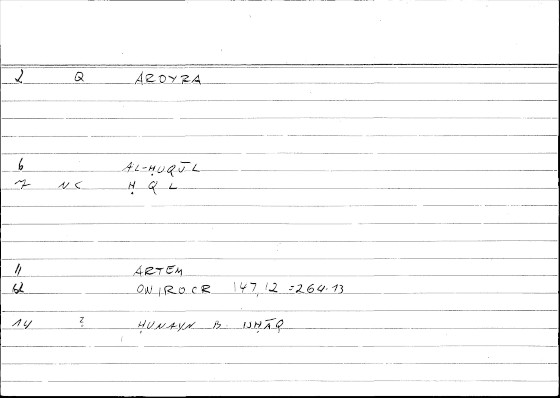 2 Q AROYRA
6 AL-ḤUQŪL
7 NC Ḥ Q L
11 ARTEM
12 ONIROCR 147,12 =264.13
14 2 ḤUNAYN B ISḤĀQ